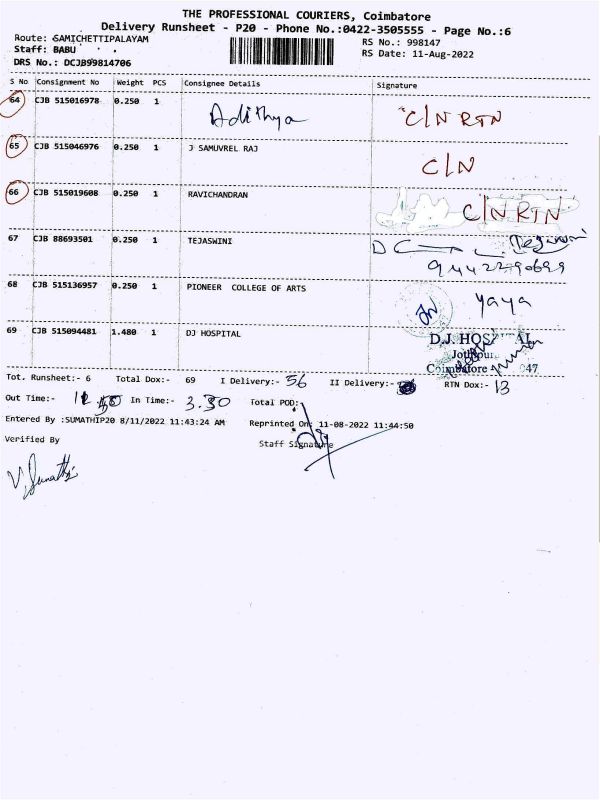 THE PROFESSIONAL COURIERS, Coimbatore
Delivery Runsheet - P20 - Phone No.:0422-3505555 - Page No.:6
Route: SAMICHETTIPALAYAM
RS No.: 998147
Staff: BABU
RS Date: 11-Aug-2022
DRS No.: DCJB99814706
S No Consignment No Weight PCS Consignee Details Signature
64 CJB 515016978 0.250 1 Adithya C/N RTN
65 CJB 515046976 0.250 1 J SAMUVREL RAJ C/N
66 CJB 515019608 0.250 1 RAVICHANDRAN C/N RTN
67 CJB 88693501 0.250 1 TEJASWINI
68 CJB 515136957 0.250 1 PIONEER COLLEGE OF ARTS yaya
69 CJB 515094481 1.480 1 DJ HOSPITAL
Tot. Runsheet:- 6 Total Dox:- 69 I Delivery:- 56 II Delivery:- RTN Dox:- 13
Out Time:- In Time:- 3.30 Total POD:-
Entered By :SUMATHIP20 8/11/2022 11:43:24 AM Reprinted On: 11-08-2022 11:44:50
Verified By Staff Signature
V. Sumathi